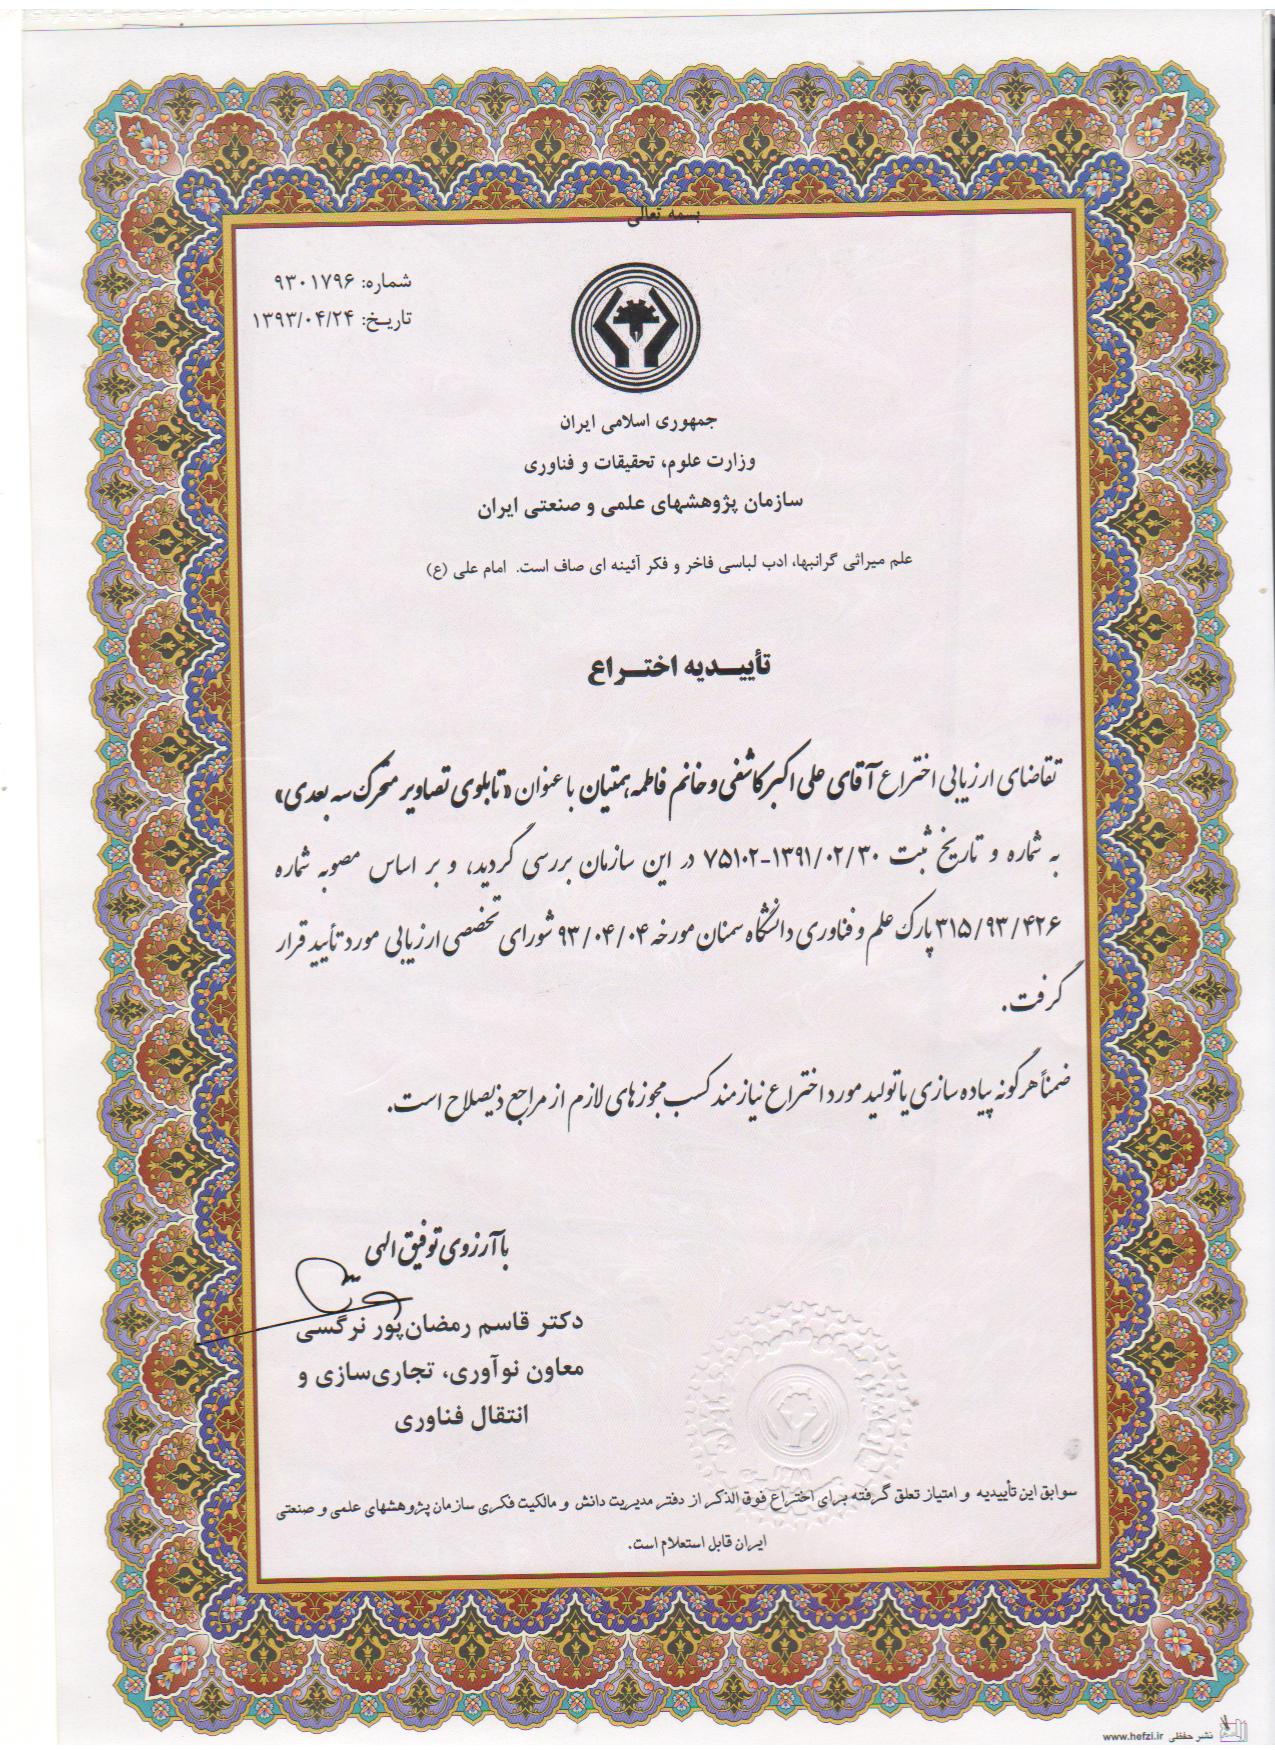 بسمه تعالی
شماره: ۹۳۰۱۷۹۶
تاریخ: ۱۳۹۳/۰۴/۲۴
جمهوری اسلامی ایران
وزارت علوم، تحقیقات و فناوری
سازمان پژوهشهای علمی و صنعتی ایران
علم میراثی گرانبها، ادب لباسی فاخر و فکر آئینه ای صاف است. امام علی (ع)
تأییدیه اختراع
تقاضای ارزیابی اختراع آقای علی اکبر کاشفی و خانم فاطمه همتیان با عنوان «تابلوی تصاویر متحرک سه بعدی»
به شماره و تاریخ ثبت ۱۳۹۱/۰۲/۳۰-۷۵۱۰۲ در این سازمان بررسی گردید، و بر اساس مصوبه شماره
۳۱۵/۹۳/۴۲۶ پارک علم و فناوری دانشگاه سمنان مورخه ۹۳/۰۴/۰۴ شورای تخصصی ارزیابی مورد تأیید قرار
گرفت.
ضمناً هرگونه پیاده سازی یا تولید مورد اختراع نیازمند کسب مجوزهای لازم از مراجع ذیصلاح است.
با آرزوی توفیق الهی
دکتر قاسم رمضان‌پور نرگسی
معاون نوآوری، تجاری‌سازی و
انتقال فناوری
سوابق این تأییدیه و امتیاز تعلق گرفته برای اختراع فوق الذکر از دفتر مدیریت دانش و مالکیت فکری سازمان پژوهشهای علمی و صنعتی
ایران قابل استعلام است.
نشر حفظی www.hefzi.ir